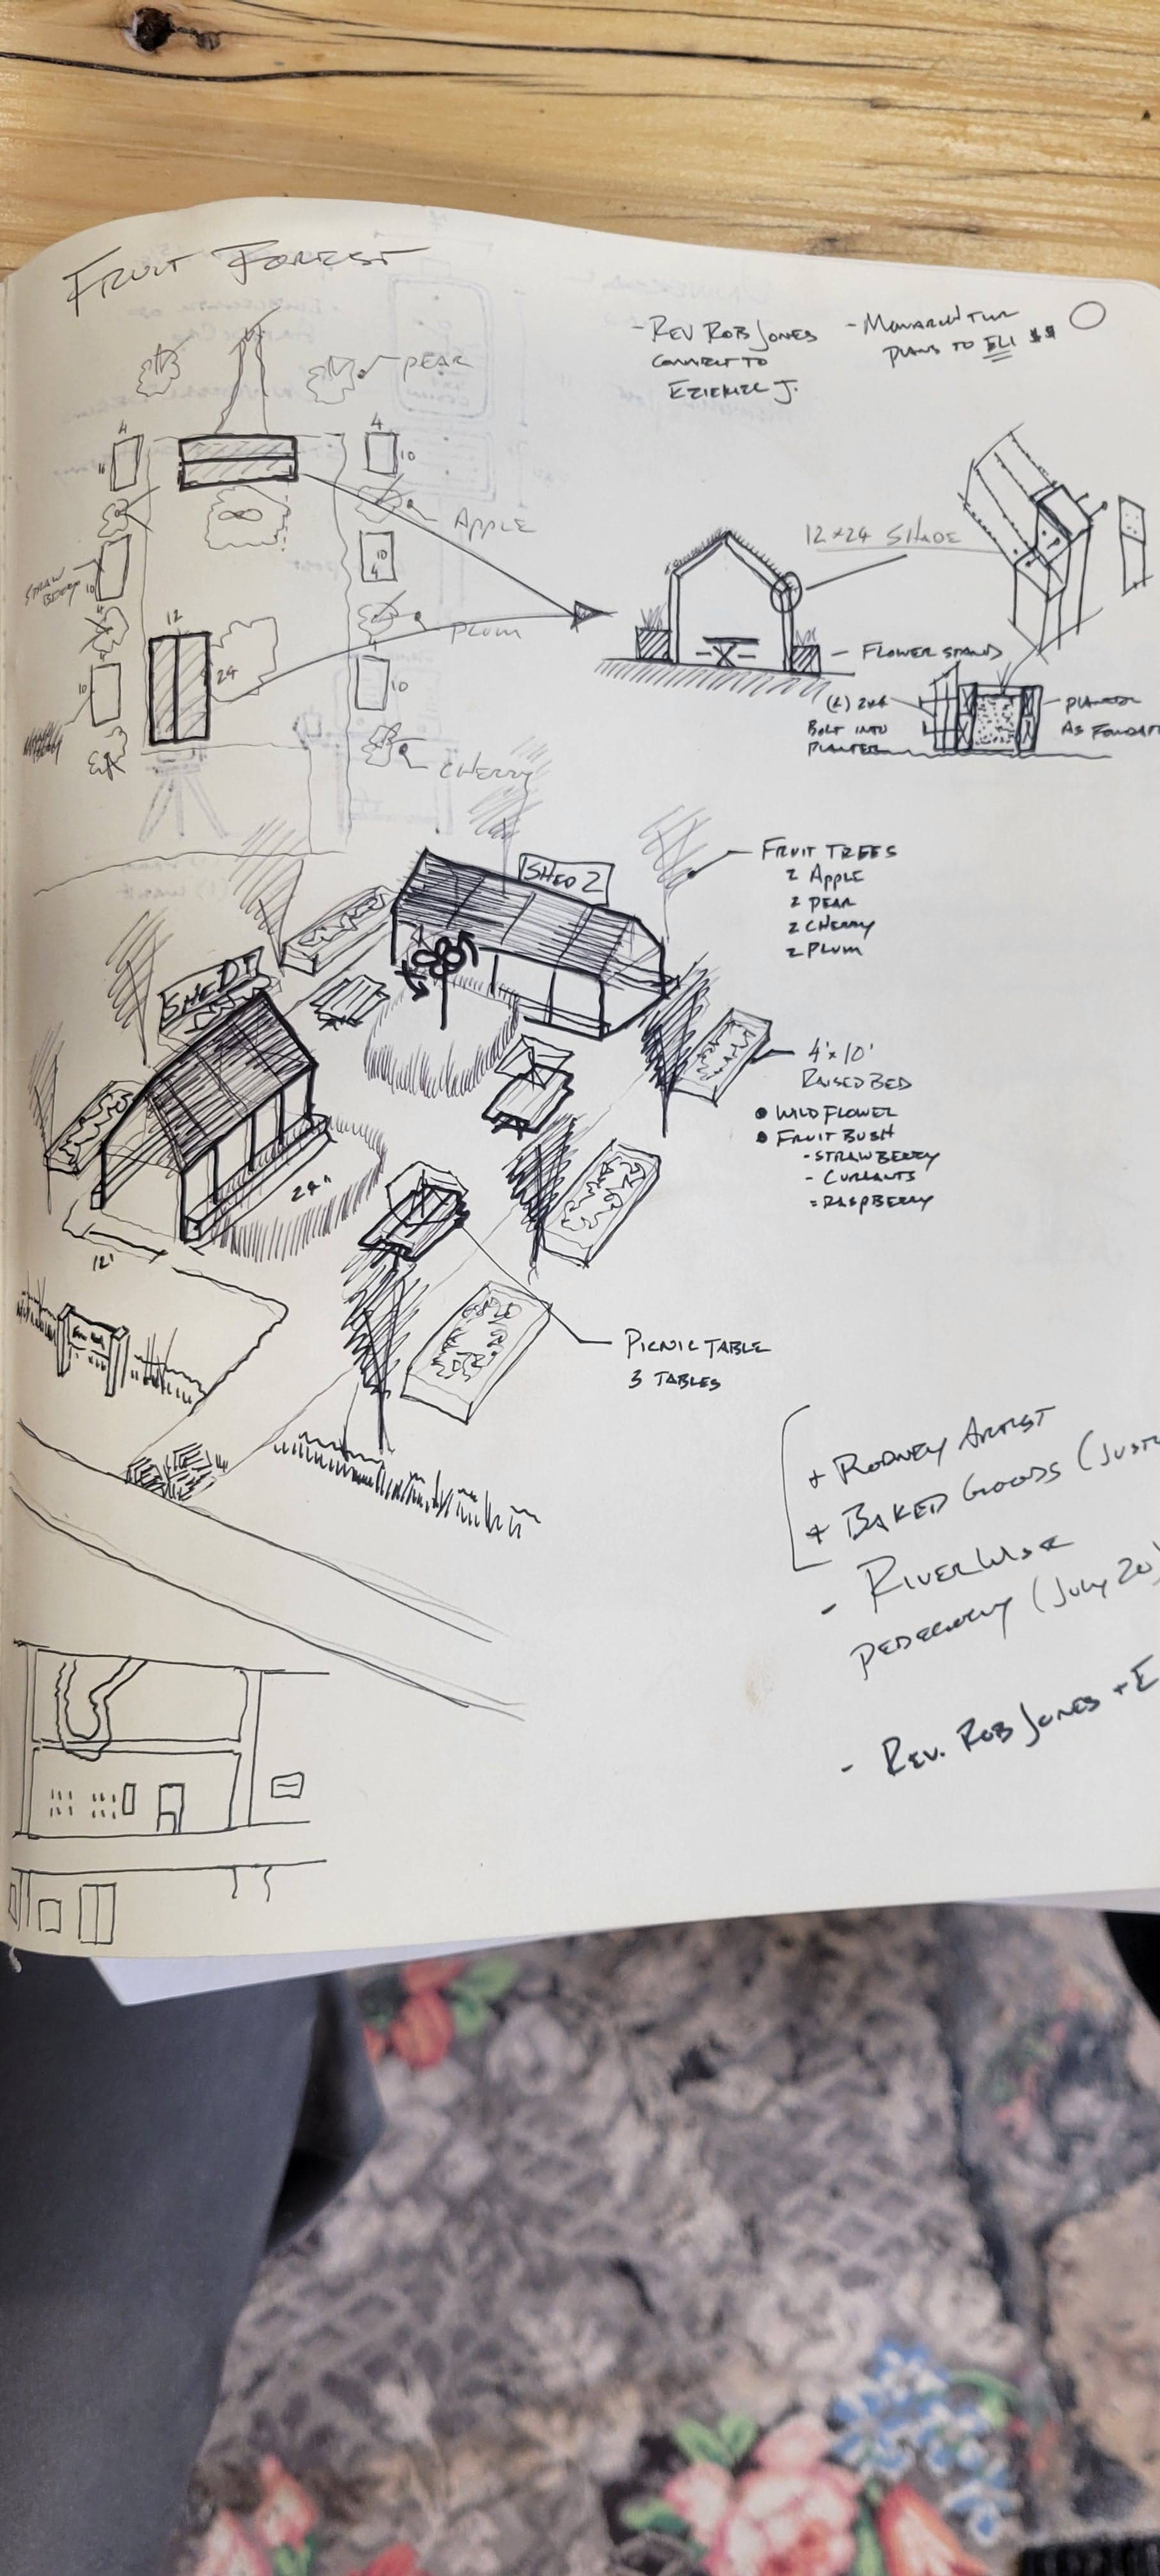 FRUIT FOREST
- REV ROB JONES
CONNECT TO
EZIEKIEL J.
PLANS TO ELI $$
PEAR
4
4
10
APPLE
10
4
STRAW
BERRY
10
12
24
PLUM
10
10
CHERRY
12x24 SHADE
- FLOWER STAND
(2) 2x4
BOLT INTO
PLANTER
- PLANTER
AS FOUNDATI
SHED 2
SHED 1
24'
12'
FRUIT TREES
2 APPLE
2 PEAR
2 CHERRY
2 PLUM
4'x10'
RAISED BED
• WILD FLOWER
• FRUIT BUSH
- STRAWBERRY
- CURRANTS
- RASPBERRY
PICNIC TABLE
3 TABLES
+ RODNEY ARTIST
+ BAKED GOODS (JUST
- RIVER
(JULY 20)
- REV. ROB JONES + E